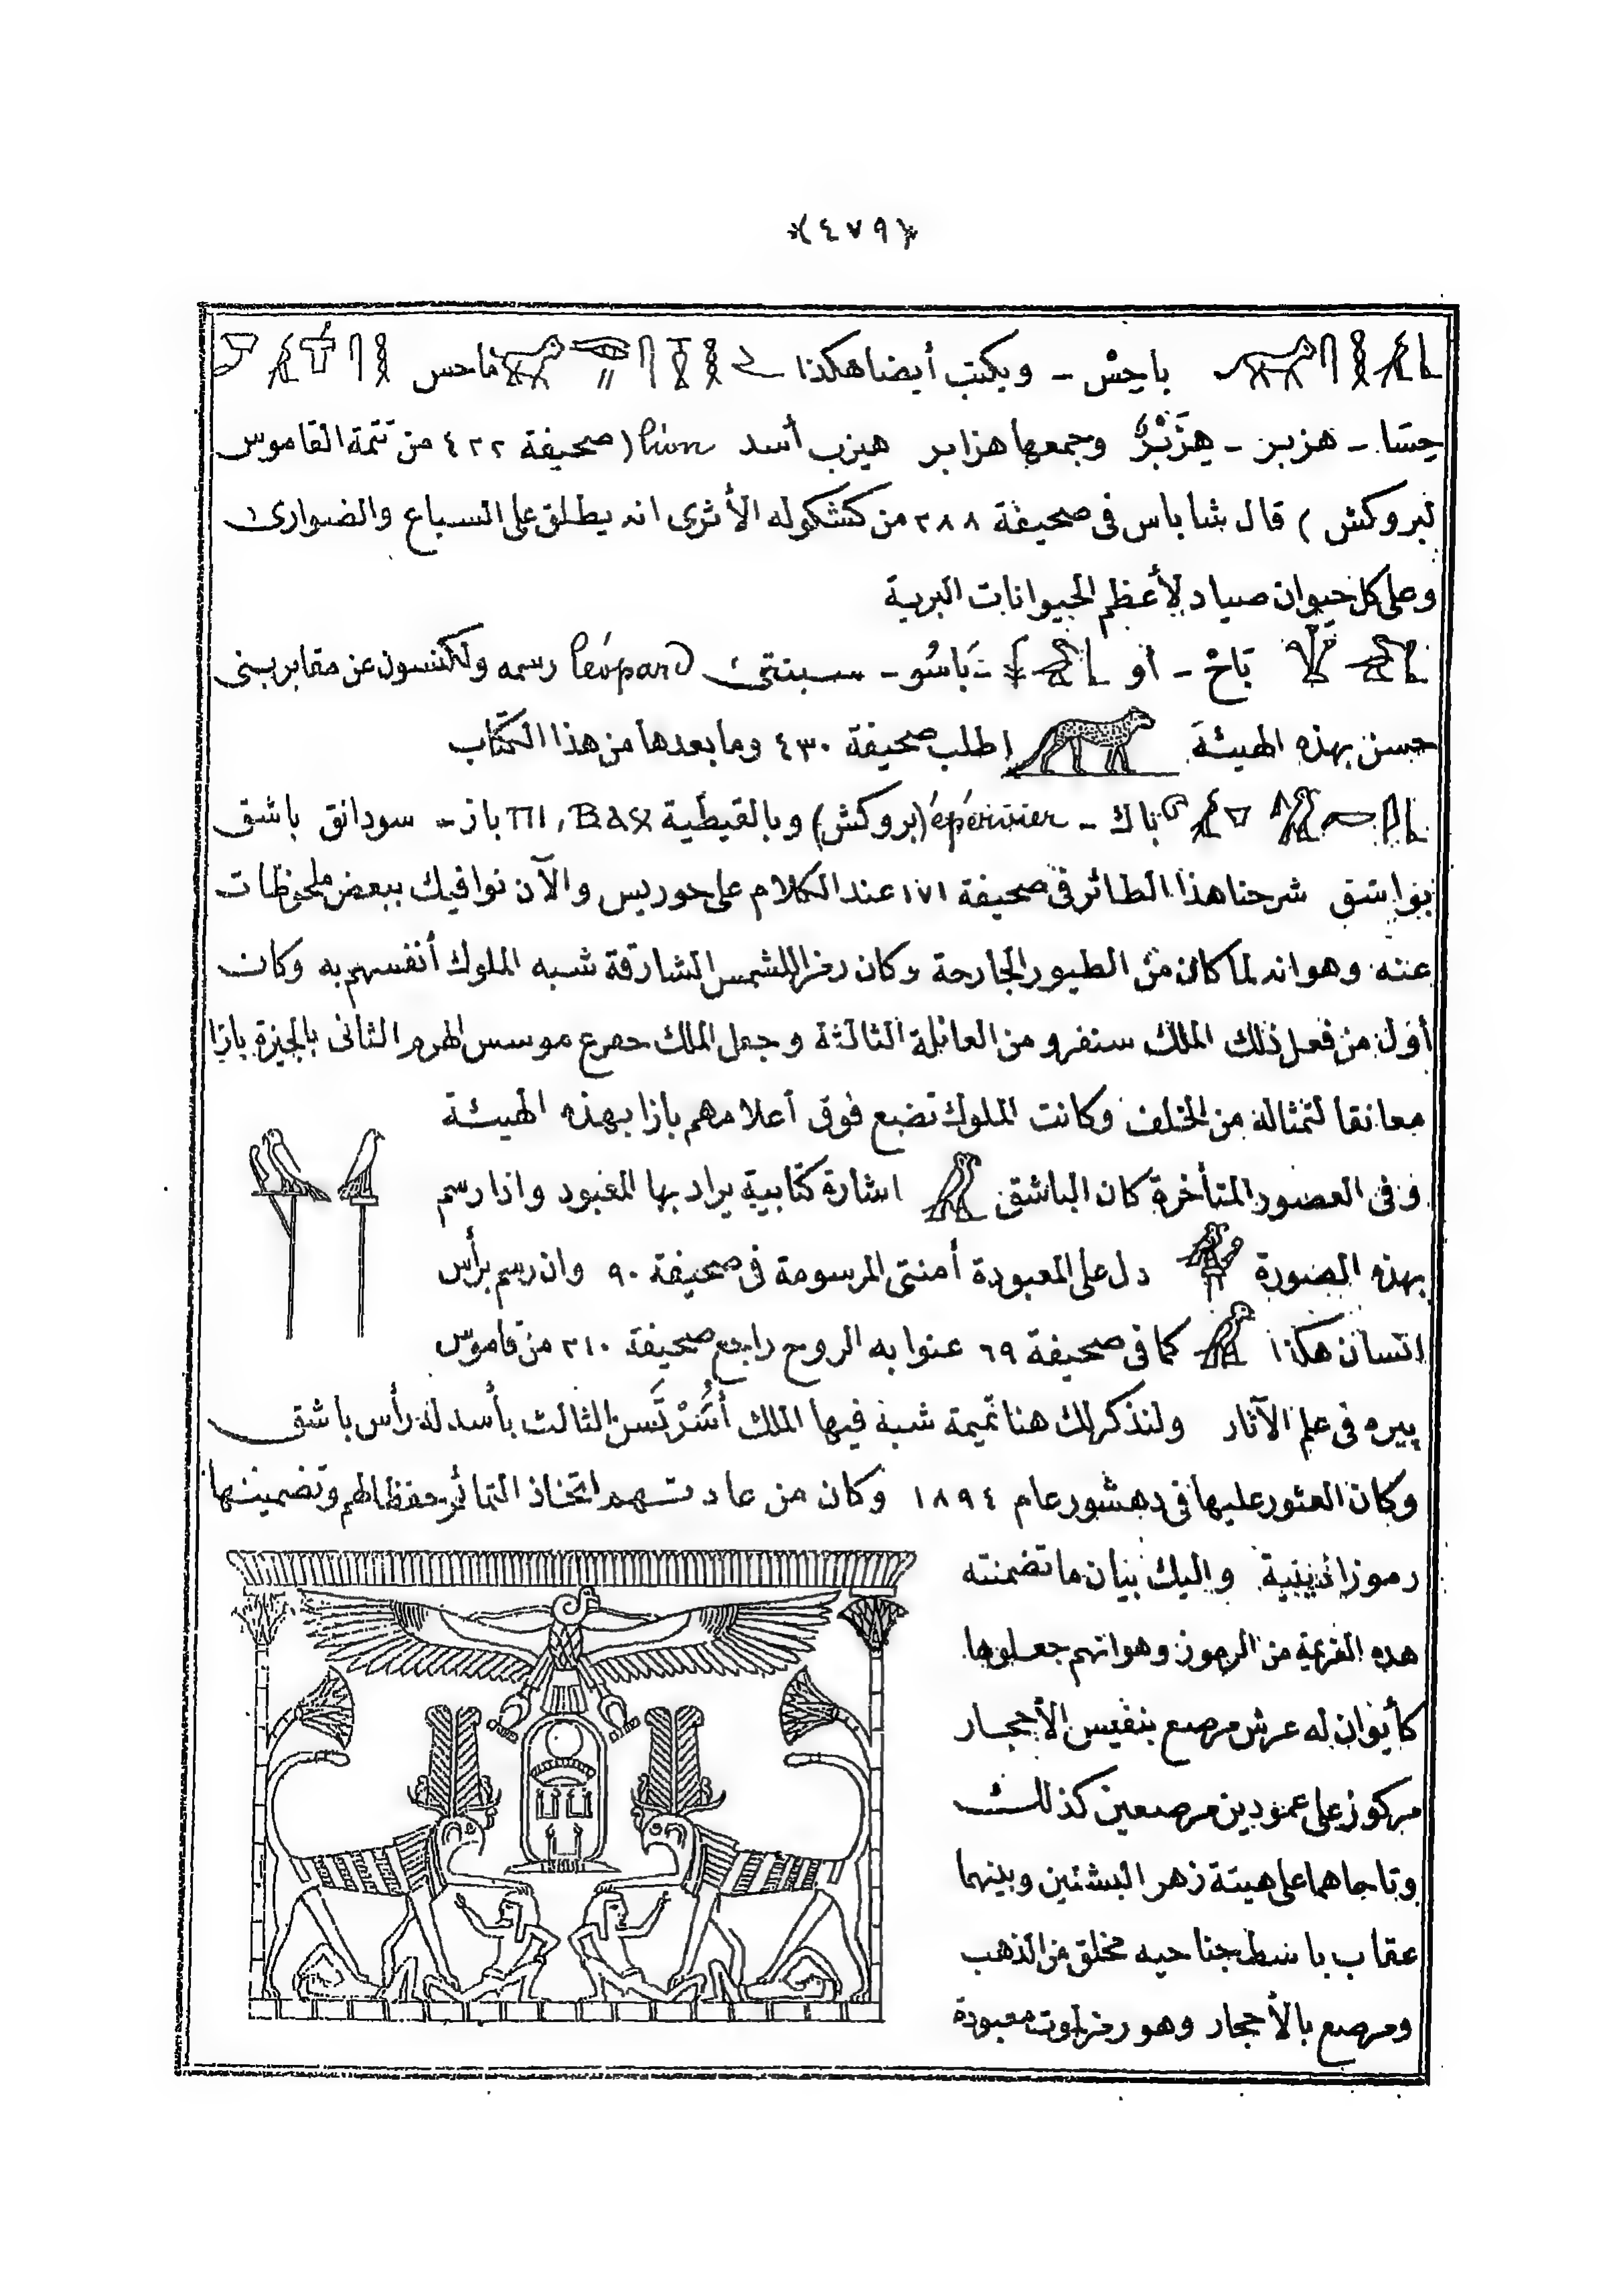 ﴿٤٧٩﴾
باحِسْ ـ ويكتب أيضا هكذا ماحس
حِسَا ـ هزبر ـ هِزَبْرٌ وجمعها هزابر هيزب أسد lion (صحيفة ٤٢٢ من تتمة القاموس
لبروكش ) قال شاباس فى صحيفة ٢٨٨ من كشكوله الأثرى انه يطلق على السباع والضوارى
وعلى كل حيوان صياد لأعظم الحيوانات البرية
بَاخْ ـ أو بَاسُو ـ سبنتى léopard رسمه ولكنسون عن مقابر بنى
حسن بهذه الهيئة اطلب صحيفة ٤٣٠ وما بعدها من هذا الكتاب
باك ـ épervier (بروكش) وبالقبطية ⲡⲓ, ⲃⲁϫ باز ـ سودانق باشق
بواشق شرحنا هذا الطائر فى صحيفة ١٧١ عند الكلام على حوريس والآن نوافيك ببعض ملحوظات
عنه وهو انه لما كان من الطيور الجارحة وكان رمزا للشمس الشارقة شبه الملوك أنفسهم به وكان
أول من فعل ذلك الملك سنفرو من العائلة الثالثة وجعل الملك خفرع موسس الهرم الثانى بالجيزة بازا
معانقا لتمثاله من الخلف وكانت الملوك تضع فوق أعلامهم بازا بهذه الهيئة
وفى العصور المتأخرة كان الباشق اشارة كتابية يراد بها المعبود واذا رسم
بهذه الصورة دل على المعبودة أمنتى المرسومة فى صحيفة ٩٠ وان رسم برأس
انسان هكذا كما فى صحيفة ٦٩ عنوا به الروح راجع صحيفة ٢١٠ من قاموس
بيره فى علم الآثار ولنذكر لك هنا تميمة شبه فيها الملك أُسَرْتَسن الثالث بأسد له رأس باشق
وكان العثور عليها فى دهشور عام ١٨٩٤ وكان من عادتهم اتخاذ التمائم حفظا لهم وتضمينها
رموزا دينية واليك بيان ما تضمنته
هذه من الرموز وهو انهم جعلوها
كأيوان له عرش مرصع بنفيس الأحجار
مركوز على عمودين مرصعين كذلك
وتاجاهما على هيئة زهر البشنين وبينهما
عقاب باسط جناحيه مخلق من الذهب
ومرصع بالأحجار وهو رمز لموت معبودة